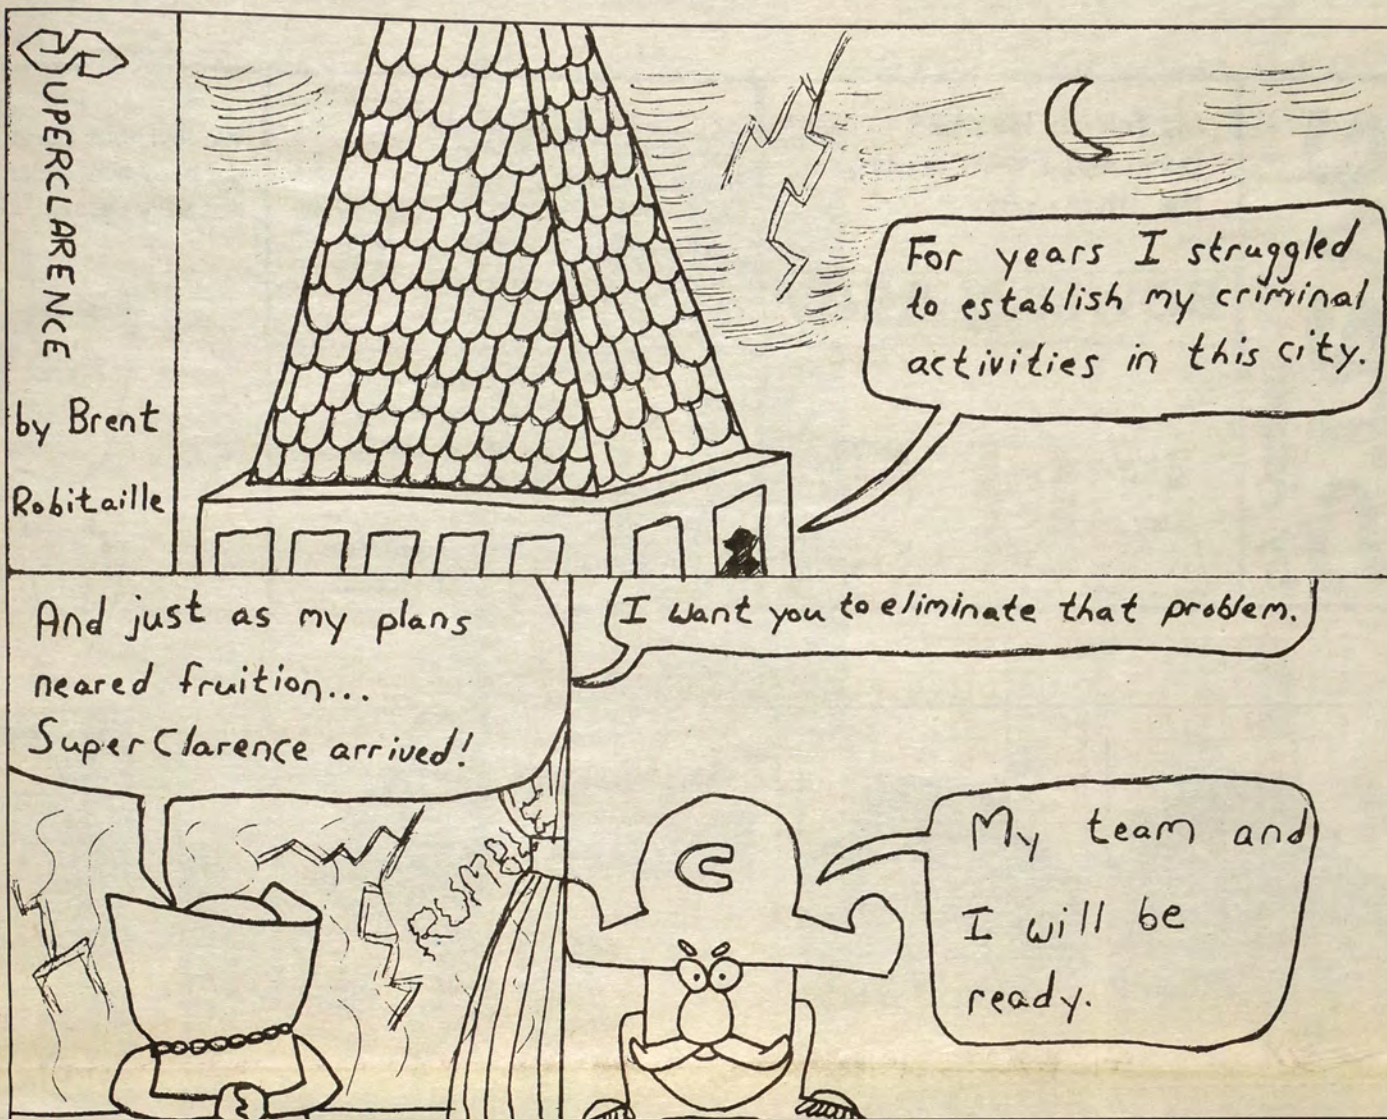 SUPERCLARENCE
by Brent
Robitaille
For years I struggled
to establish my criminal
activities in this city.
And just as my plans
neared fruition...
SuperClarence arrived!
RUMBLE
I want you to eliminate that problem.
C
My team and
I will be
ready.